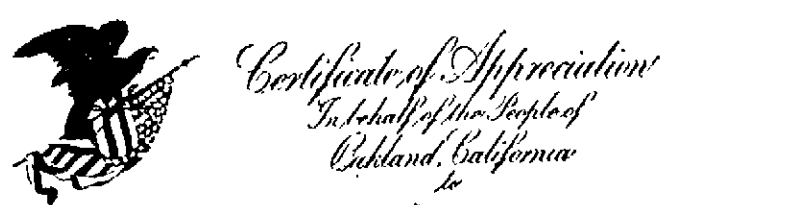 Certificate of Appreciation
In behalf of the People of
Oakland, California
to